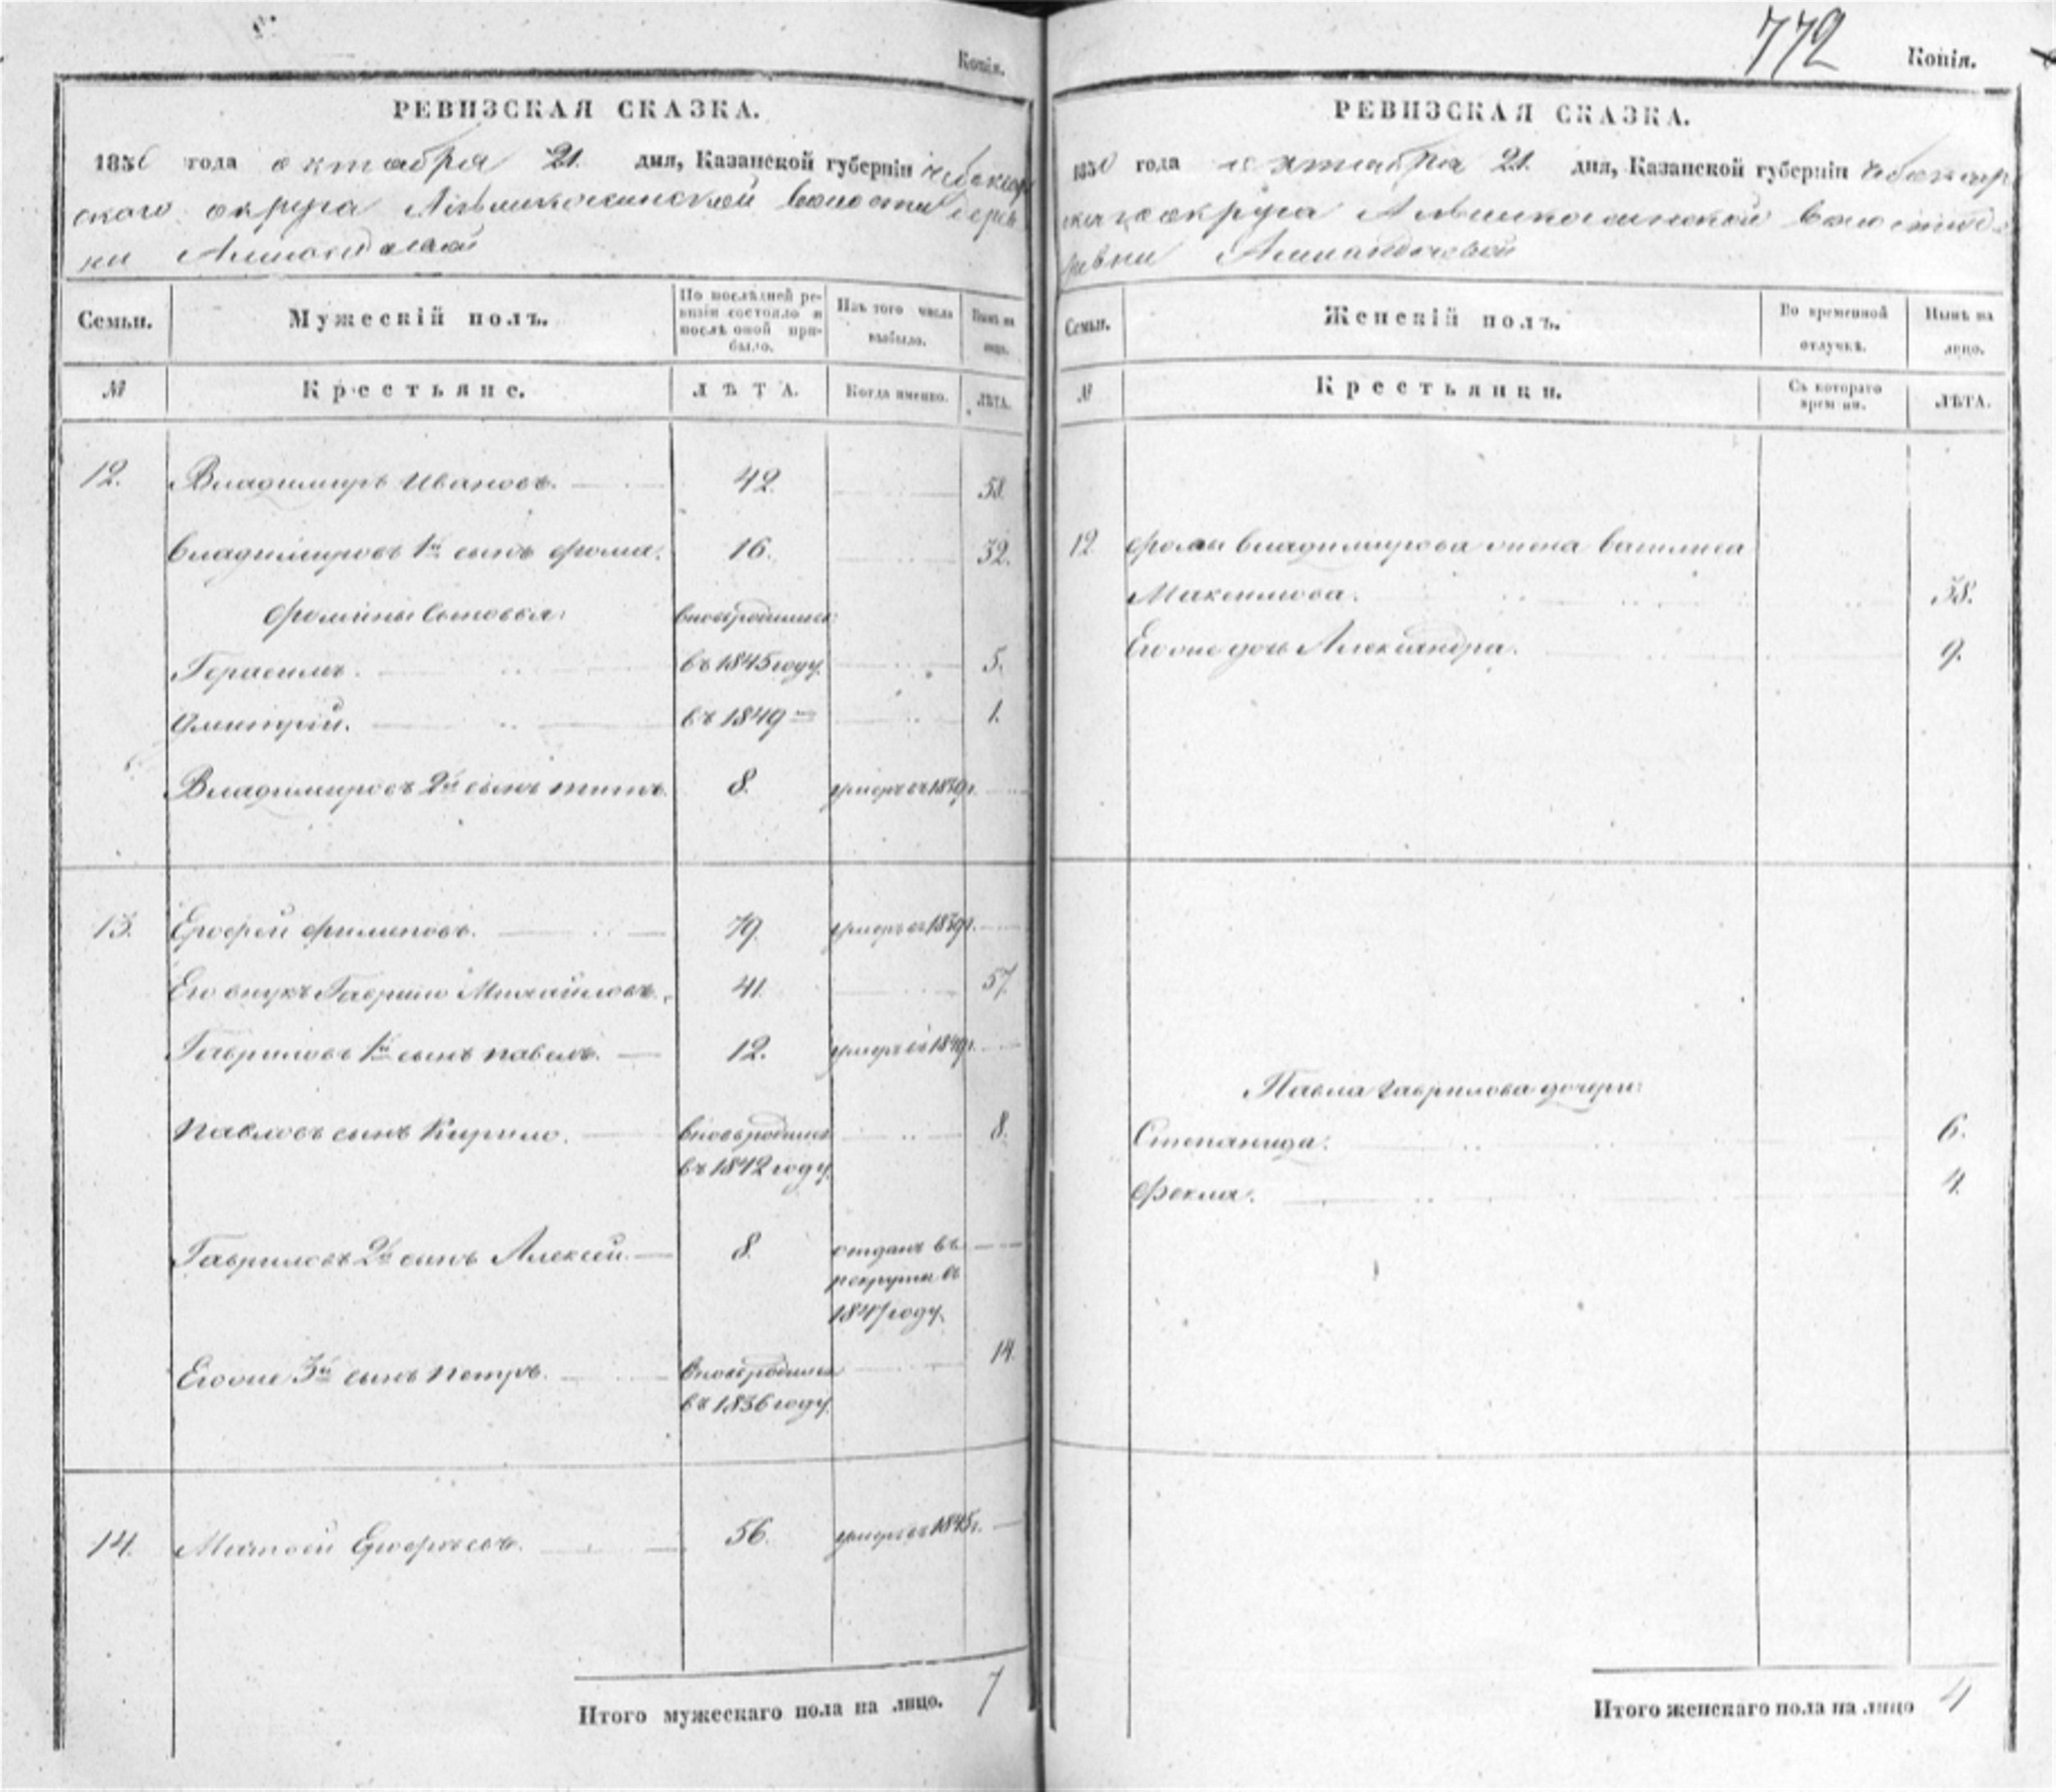 Копія.
РЕВИЗСКАЯ СКАЗКА.
1850 года октября 21. дня, Казанской губерніи Чебоксар
скаго округа волости дерев
ни
Семьи.
Мужескій полъ.
По послѣдней ре-
визіи состояло и
послѣ оной при-
было.
Изъ того числа
выбыло.
Нынѣ на
лицо.
№
Крестьяне.
ЛѢТА.
Когда именно.
ЛѢТА.
12. Владимиръ Ивановъ. 42. 58.
Владимировъ 1й сынъ Фома. 16. 32.
Фомины сыновья: вновьродились
Герасимъ. въ 1845 году. 5.
Дмитрій. въ 1849 1.
Владимировъ 2й сынъ Титъ. 8. умеръ въ 1839г.
13. Ерофей Филиповъ. 79. умеръ въ 1839г.
Его внукъ Гаврило Михайловъ. 41. 57.
Гавриловъ 1й сынъ Павелъ. 12. умеръ въ 1849г.
Павловъ сынъ Кирило. вновьродился 8.
въ 1842 году.
Гавриловъ 2й сынъ Алексей. 8. отданъ въ
рекруты въ
1847 году.
14.
Егоже 3й сынъ Петръ. вновьродился
въ 1836 году.
14. Матвей Ерофеевъ. 56. умеръ въ 1845г.
Итого мужескаго пола на лицо. 7
772
Копія.
РЕВИЗСКАЯ СКАЗКА.
1850 года октября 21. дня, Казанской губерніи Чебоксар
скаго округа волости де
ревни
Семьи.
Женскій полъ.
Во временной
отлучкѣ.
Нынѣ на
лицо.
№
Крестьянки.
Съ котораго
времени.
ЛѢТА.
12. Фомы Владимирова жена Василиса
Максимова. 38.
Егоже дочь Александра. 9.
Павла Гаврилова дочери:
Степанида. 6.
Фекла. 4.
Итого женскаго пола на лицо 4